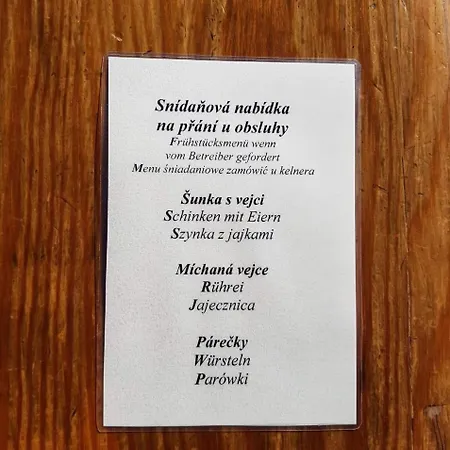 Snídaňová nabídka
na přání u obsluhy
Frühstücksmenü wenn
vom Betreiber gefordert
Menu śniadaniowe zamówić u kelnera
Šunka s vejci
Schinken mit Eiern
Szynka z jajkami
Míchaná vejce
Rührei
Jajecznica
Párečky
Würsteln
Parówki